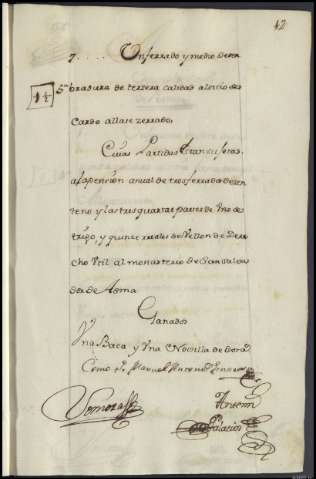 42
7.... Un ferrado y medio de sem
1½ 5ª bradura de tercera calidad al sitio de
Cardo allase zerrado,
Cuias Partidas
a la pension anual de tres ferrados de zen
teno y las tres quartas partes de Uno de
trigo, y quince reales de Vellon de Dere
cho Util al monasterio de San Salva
dor de Asma
Ganados
Una Baca y Una Novilla de
Como Manuel
Somoza
Antemi
Palacios